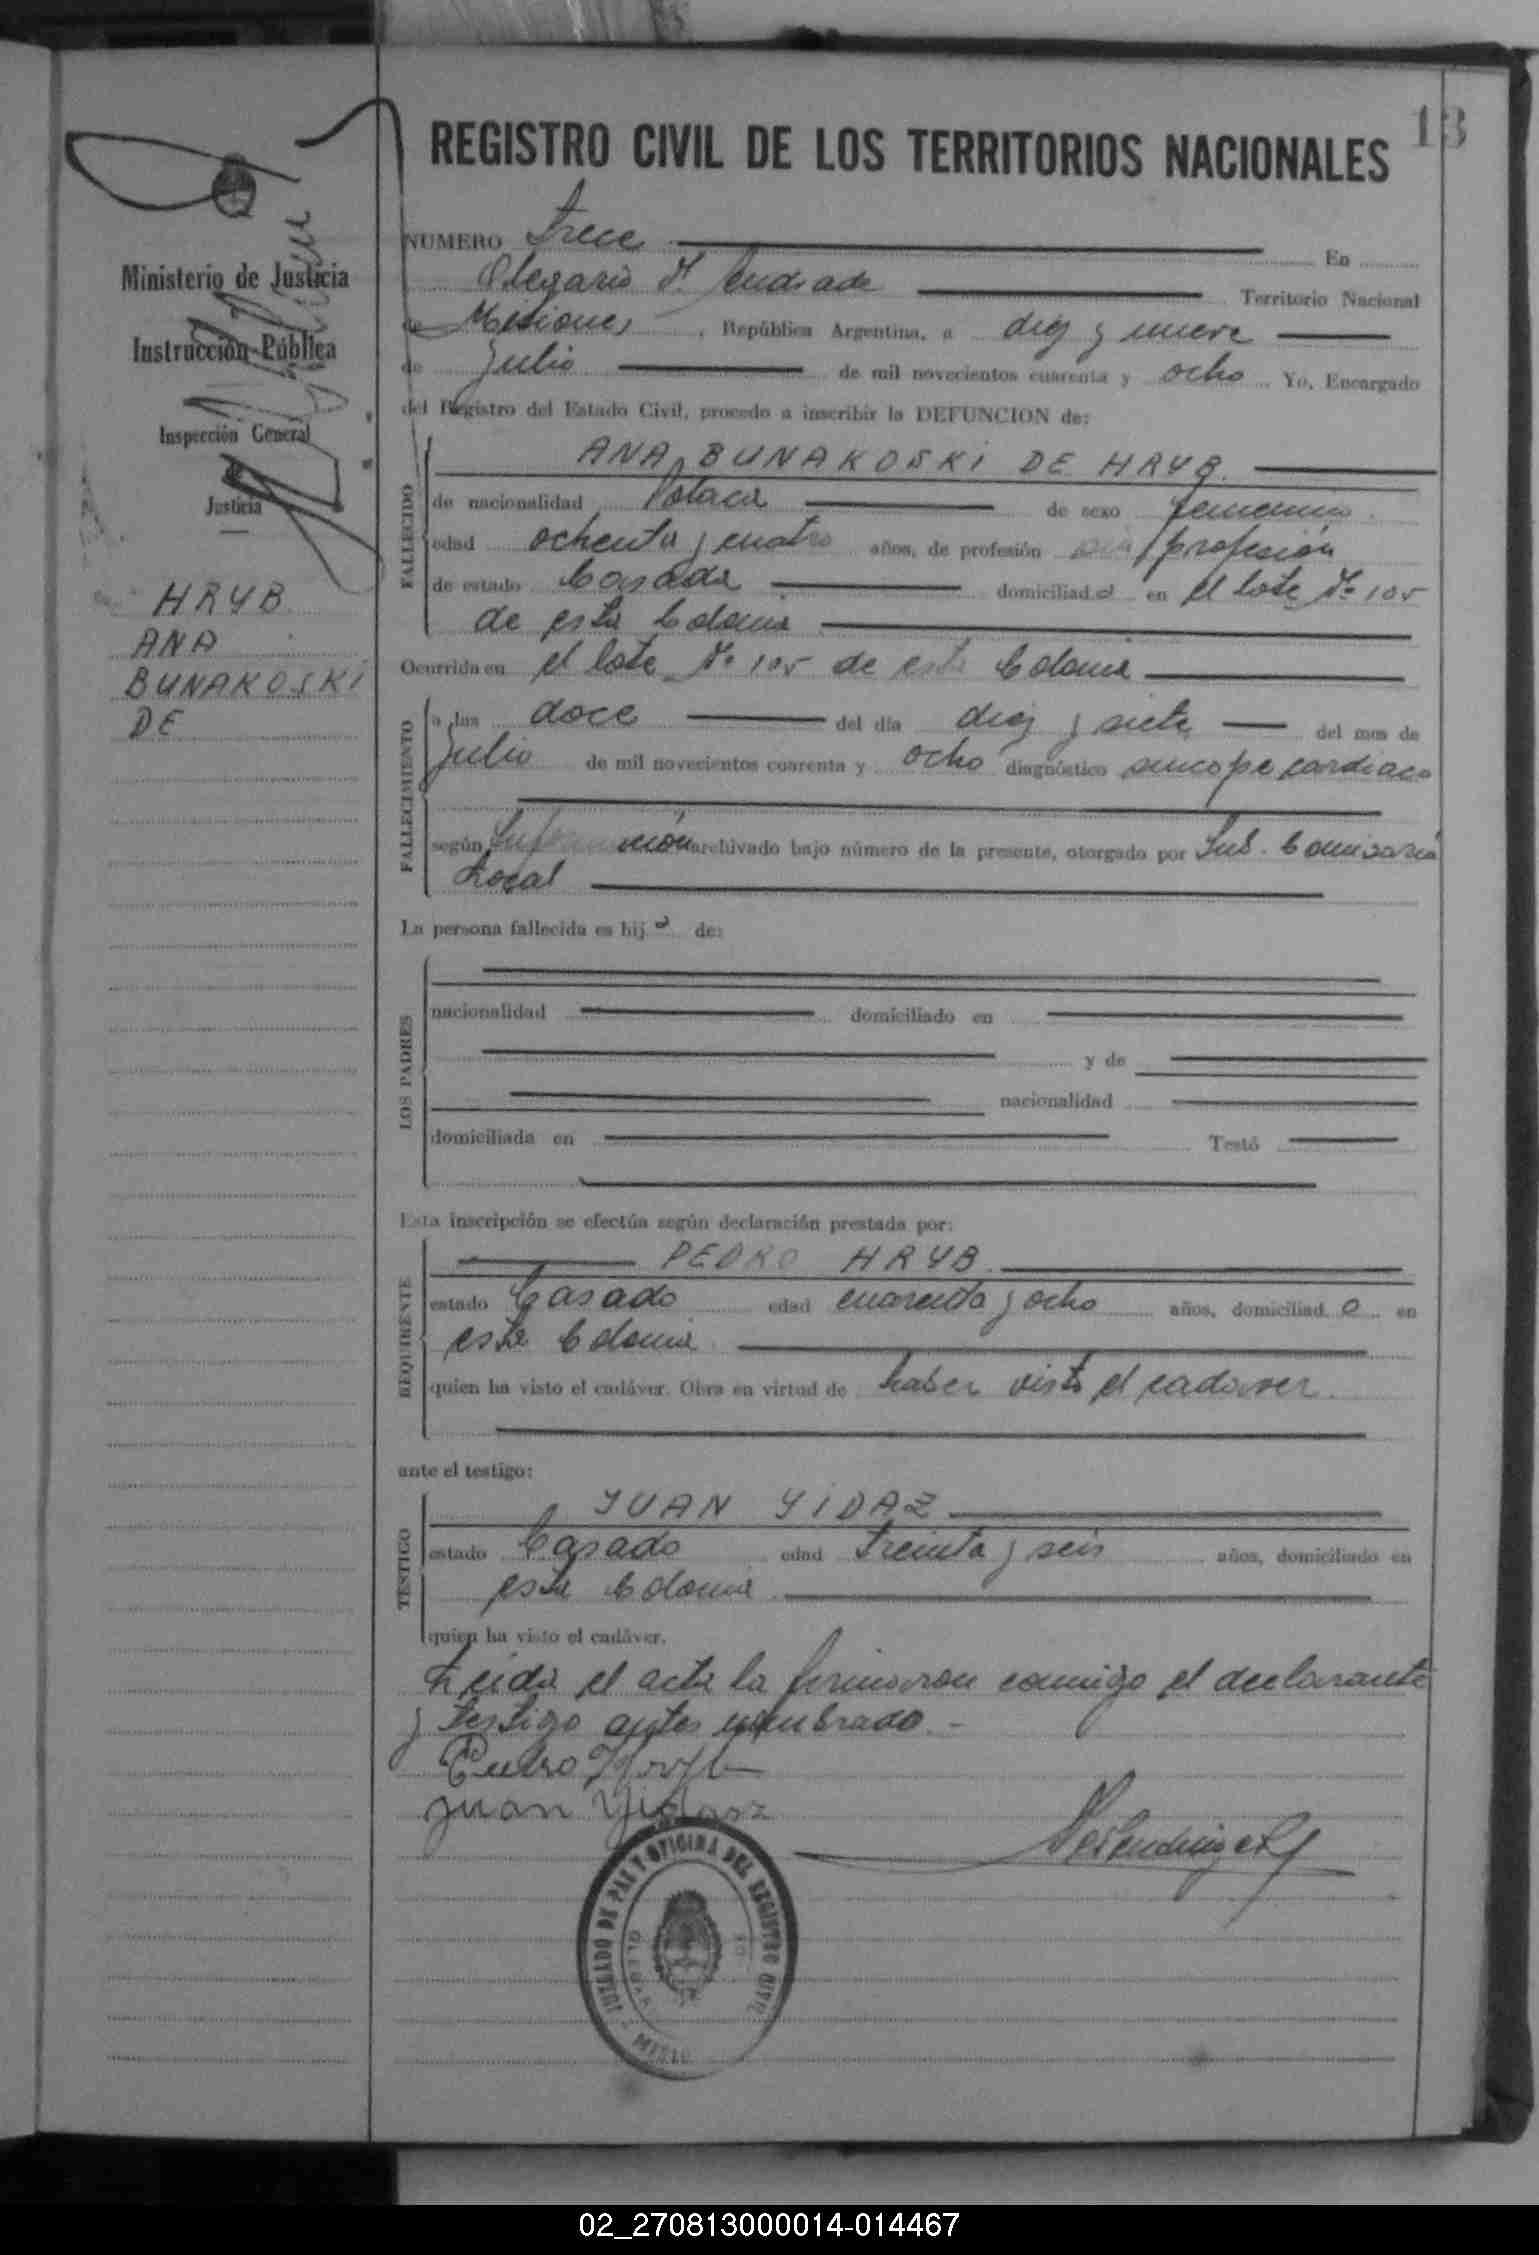 13
REGISTRO CIVIL DE LOS TERRITORIOS NACIONALES
Ministerio de Justicia
Instrucción Pública
Inspección General
de
Justicia
HRYB
ANA
BUNAKOSKI
DE
NUMERO trece En
Olegario V. Andrade Territorio Nacional
de Misiones, República Argentina, a diez y nueve
de Julio de mil novecientos cuarenta y ocho Yo, Encargado
del Registro del Estado Civil, procedo a inscribir la DEFUNCION de:
FALLECIDO
ANA BUNAKOSKI DE HRYB.
de nacionalidad Polaca de sexo femenino
edad ochenta y cuatro años, de profesión sin profesión
de estado Casada domiciliada en el lote Nº 105
de esta Colonia
Ocurrida en el lote Nº 105 de esta Colonia
FALLECIMIENTO
a las doce del día diez y siete del mes de
Julio de mil novecientos cuarenta y ocho diagnóstico sincope cardiaco
según Información archivado bajo número de la presente, otorgado por Sub. Comisaria
Local
La persona fallecida es hija de:
LOS PADRES
nacionalidad domiciliado en
y de
nacionalidad
domiciliada en Testó
Esta inscripción se efectúa según declaración prestada por:
REQUIRENTE
PEDRO HRYB.
estado Casado edad cuarenta y ocho años, domiciliado en
esta Colonia
quien ha visto el cadáver. Obra en virtud de haber visto el cadaver.
ante el testigo:
TESTIGO
JUAN YIDAZ
estado Casado edad treinta y seis años, domiciliado en
esta Colonia
quien ha visto el cadáver.
Leida el acta la firmaron conmigo el declarante
y testigo antes nombrado.-
Pedro Hryb
Juan Yidasz
JUZGADO DE PAZ Y OFICINA DEL REGISTRO CIVIL
02_270813000014-014467